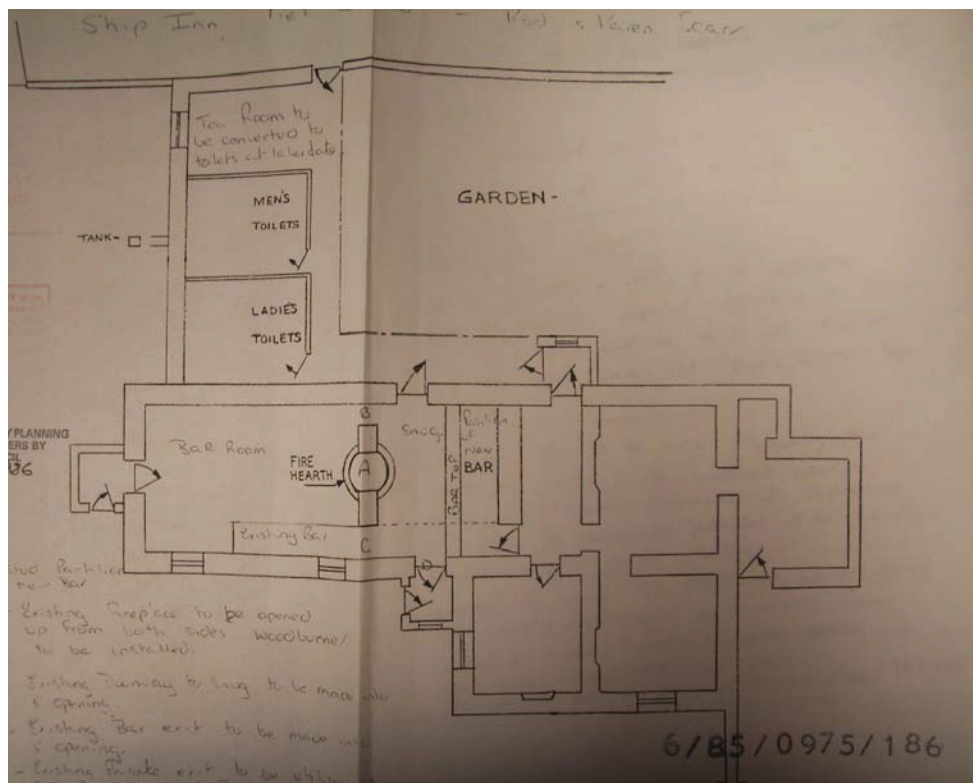 Ship Inn,
Tea Room to
be converted to
toilets at later date.
MEN'S
TOILETS
GARDEN -
TANK -
LADIE'S
TOILETS
B
Snug
Position
of
new
BAR
BAR TOP
Bar Room
FIRE
HEARTH
A
PLANNING
ERS BY
CIL
Existing Bar
C
D
Stud Partition
new Bar
Existing fireplace to be opened
up from both sides woodburner
to be installed.
Existing Doorway to Snug to be made into
5' opening.
- Existing Bar exit to be made into
5' opening.
- Existing Private exit to be
6/85/0975/186